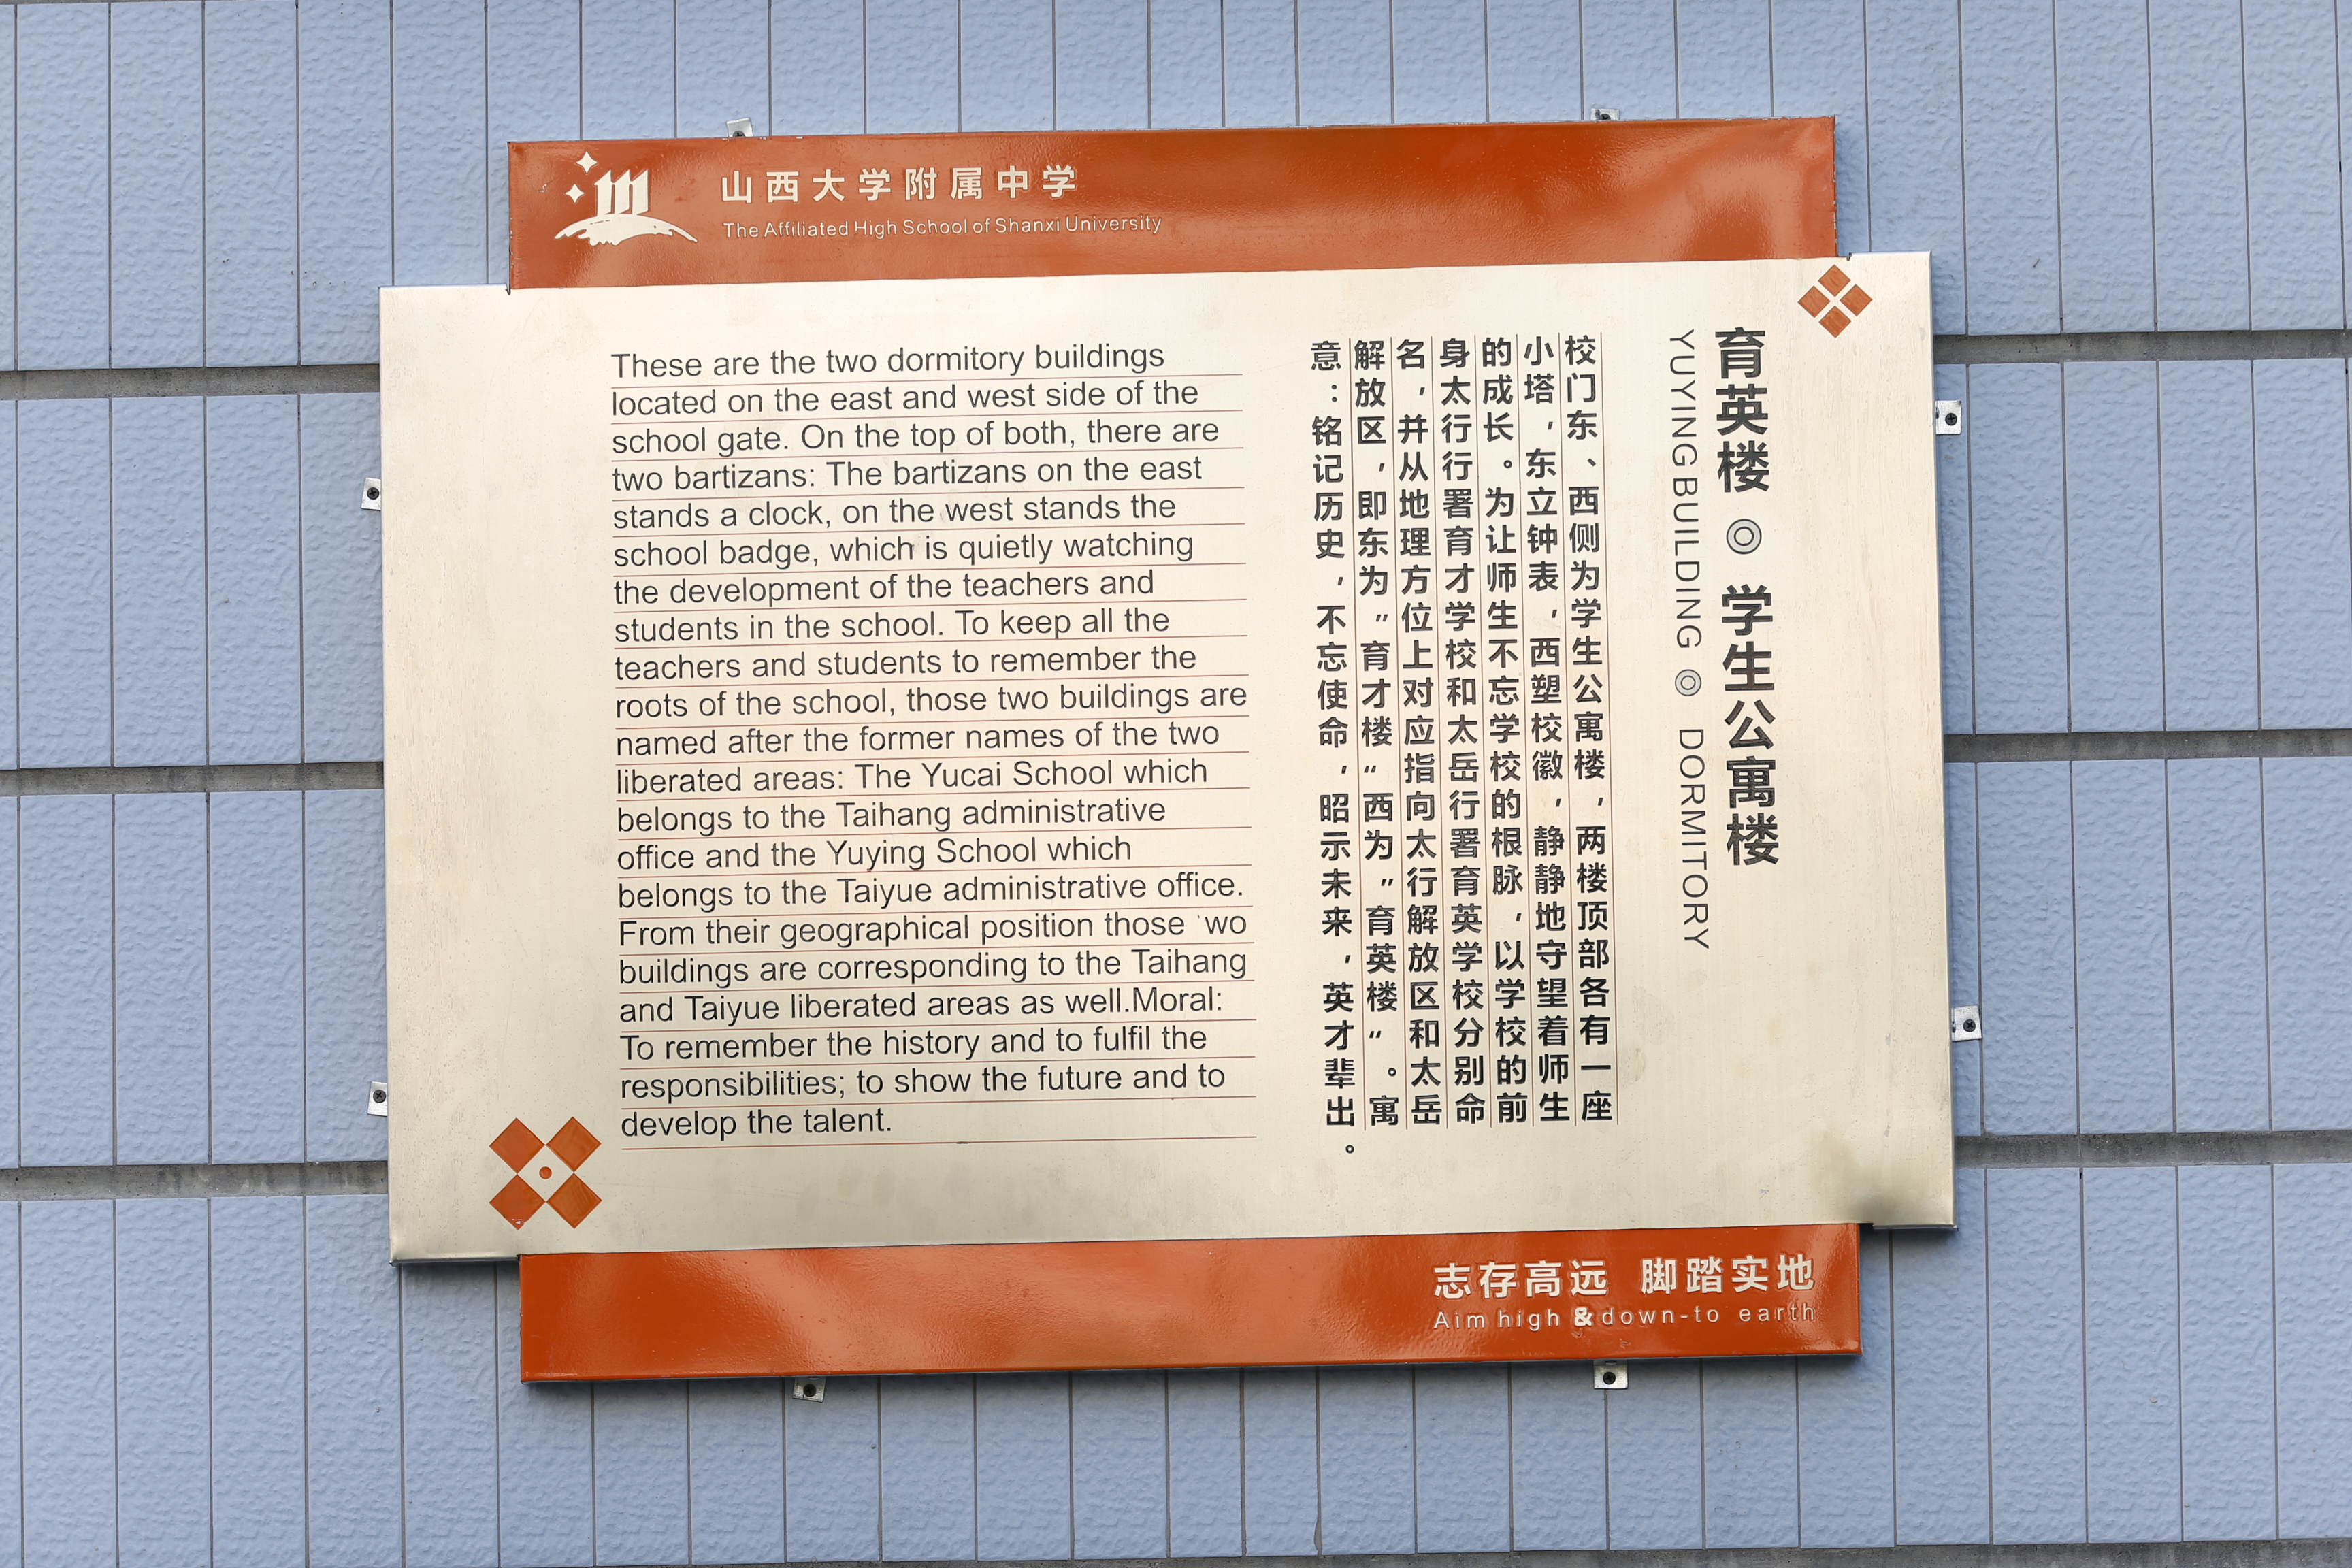 山西大学附属中学
The Affiliated High School of Shanxi University
育英楼 ◎ 学生公寓楼
YUYING BUILDING ◎ DORMITORY
校门东、西侧为学生公寓楼，两楼顶部各有一座
小塔，东立钟表，西塑校徽，静静地守望着师生
的成长。为让师生不忘学校的根脉，以学校的前
身太行行署育才学校和太岳行署育英学校分别命
名，并从地理方位上对应指向太行解放区和太岳
解放区，即东为“育才楼”西为“育英楼”。寓
意：铭记历史，不忘使命，昭示未来，英才辈出。
These are the two dormitory buildings
located on the east and west side of the
school gate. On the top of both, there are
two bartizans: The bartizans on the east
stands a clock, on the west stands the
school badge, which is quietly watching
the development of the teachers and
students in the school. To keep all the
teachers and students to remember the
roots of the school, those two buildings are
named after the former names of the two
liberated areas: The Yucai School which
belongs to the Taihang administrative
office and the Yuying School which
belongs to the Taiyue administrative office.
From their geographical position those wo
buildings are corresponding to the Taihang
and Taiyue liberated areas as well.Moral:
To remember the history and to fulfil the
responsibilities; to show the future and to
develop the talent.
志存高远 脚踏实地
Aim high & down-to earth